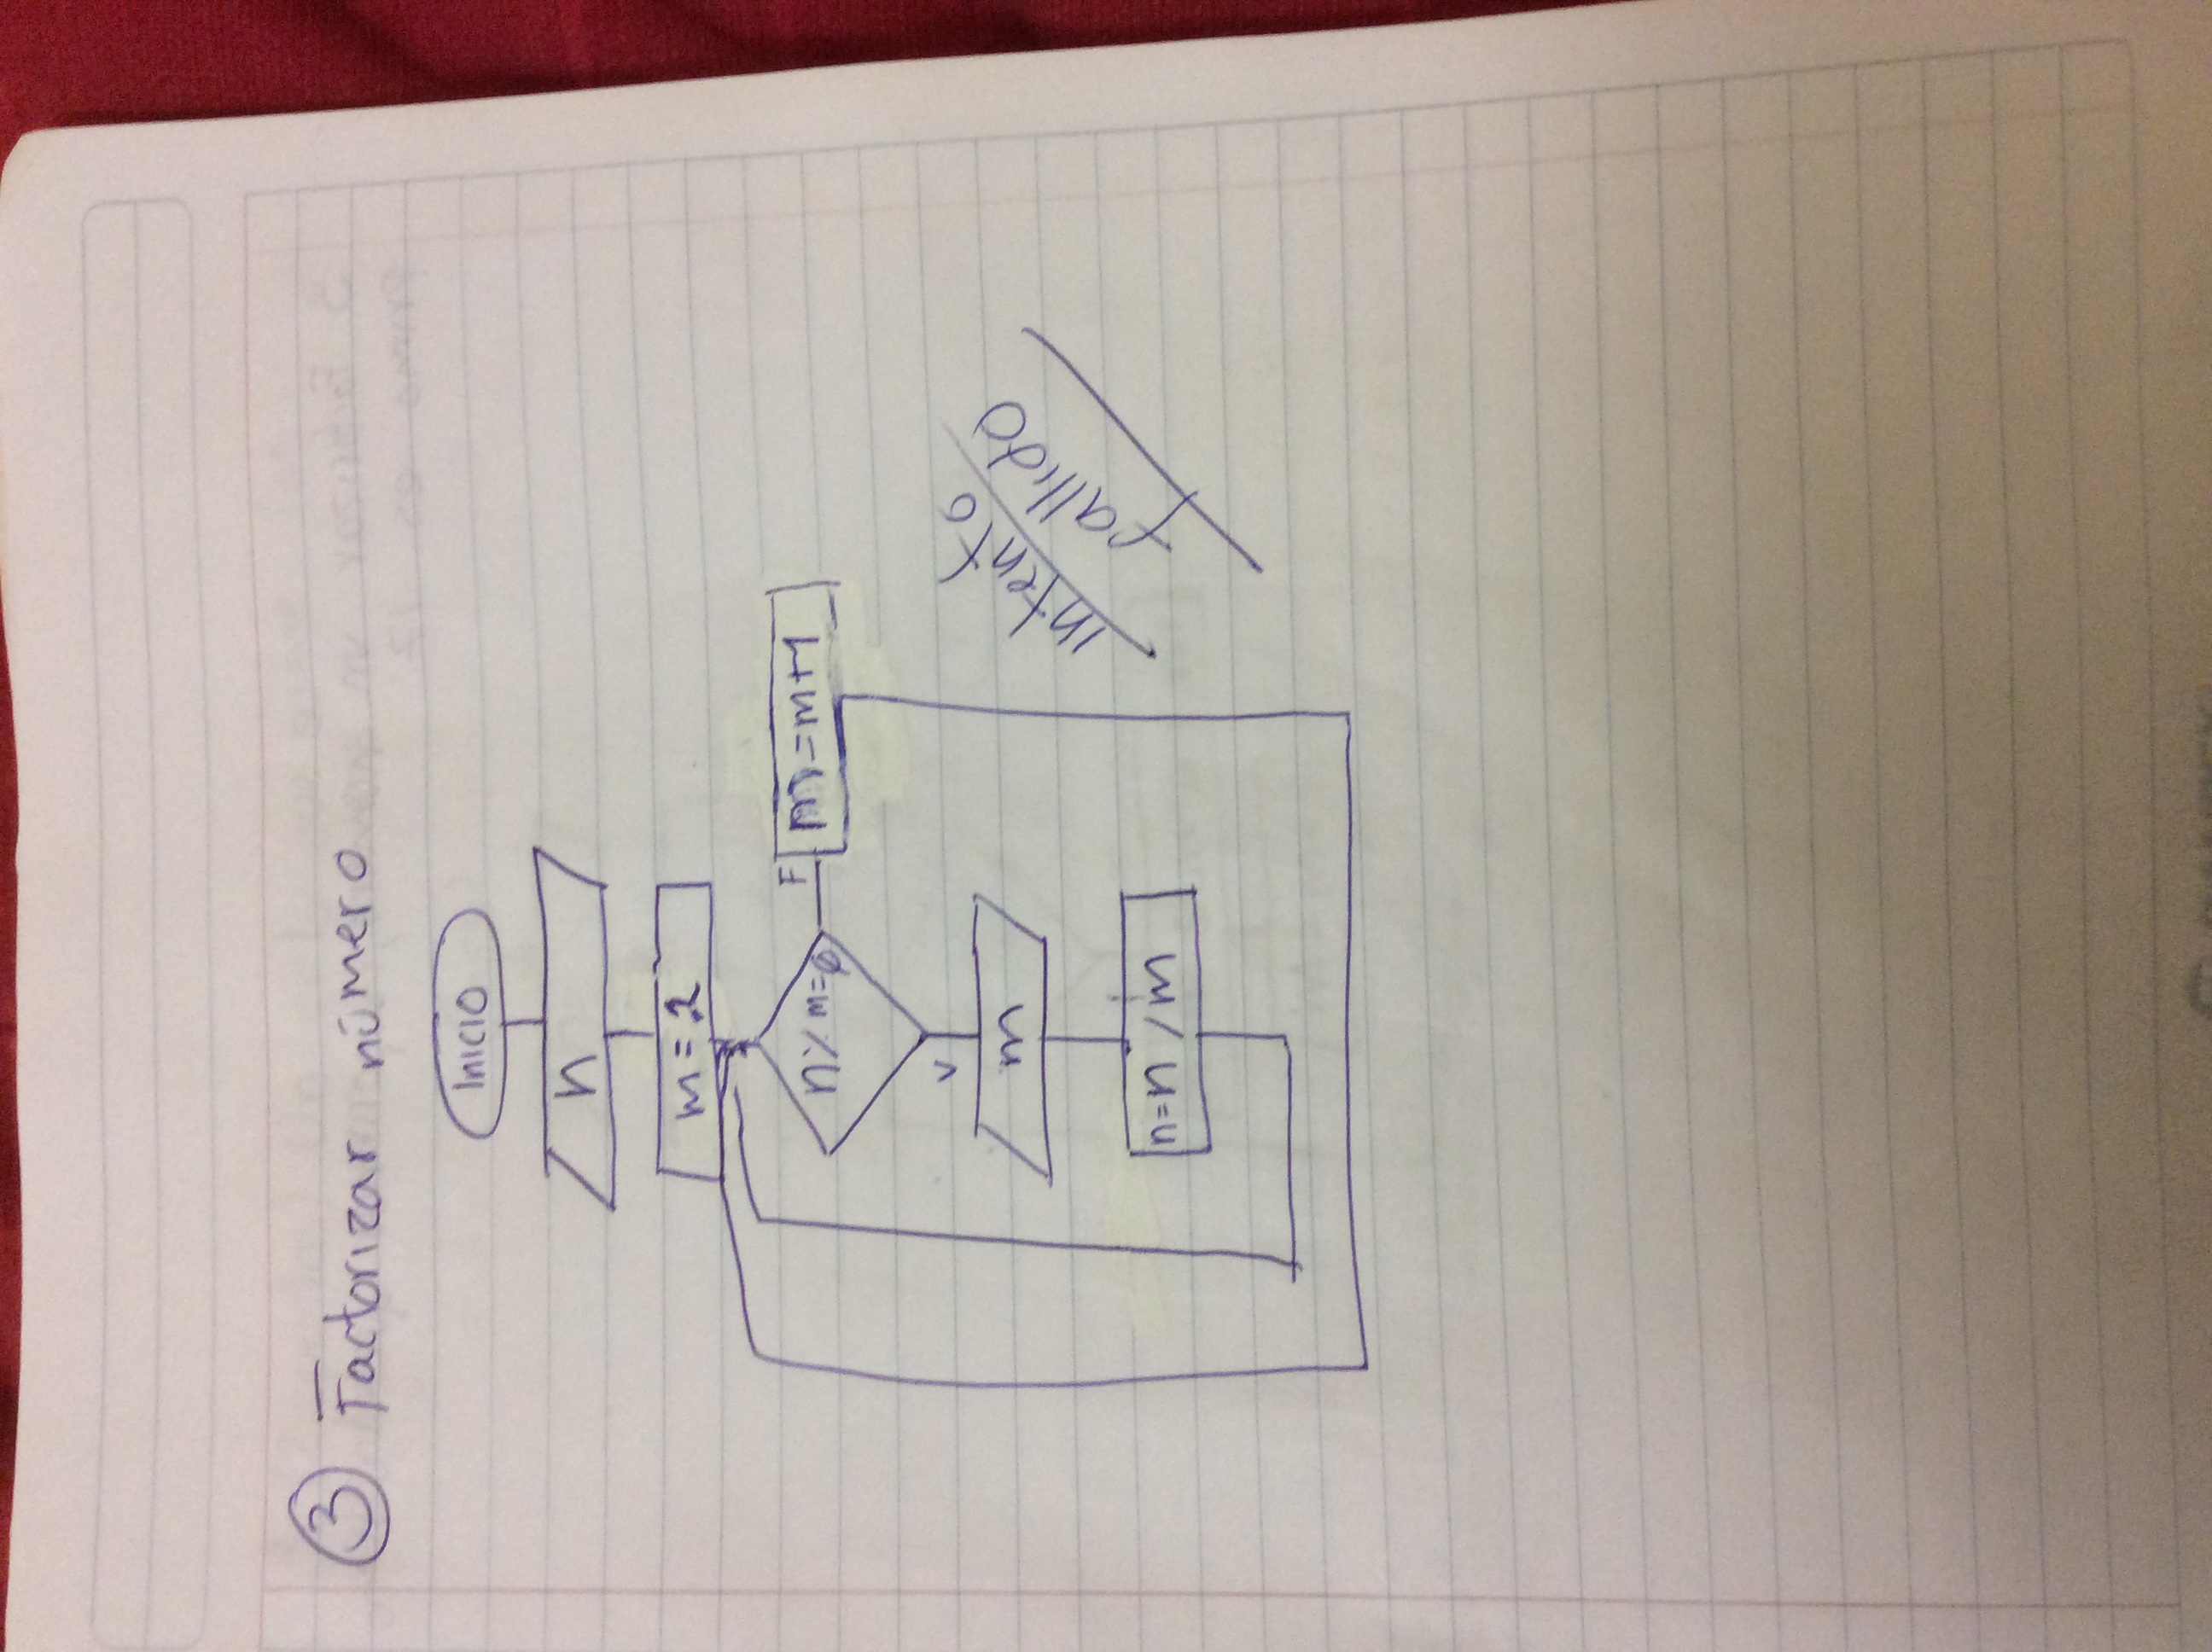 ③ Factorizar número
Inicio
n
m = 2
n % m = 0
F
m = m + 1
V
m
n = n / m
intento
fallido